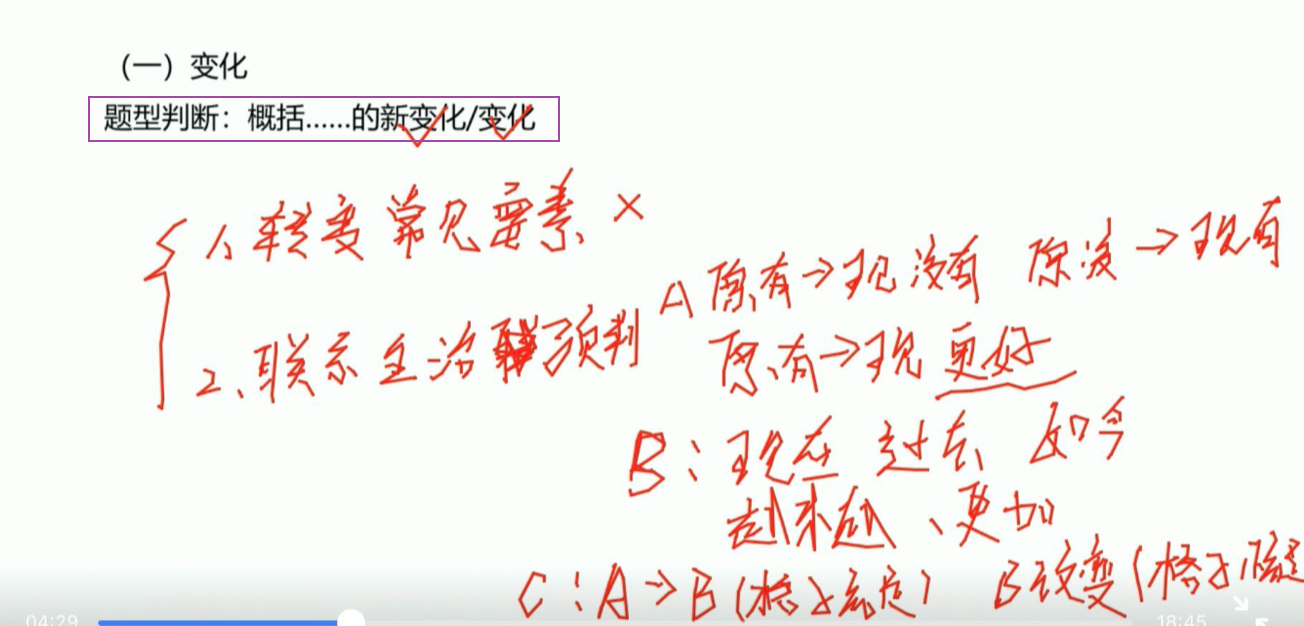 （一）变化
题型判断：概括……的新变化/变化
1、转变常见要素 ×
2、联系生活 预判
A 原有→现没有 原没→现有
原有→现更好
B：现在 过去 如今
越来越、更加
C：A→B（格子 B改变（格子
04:29 18:45